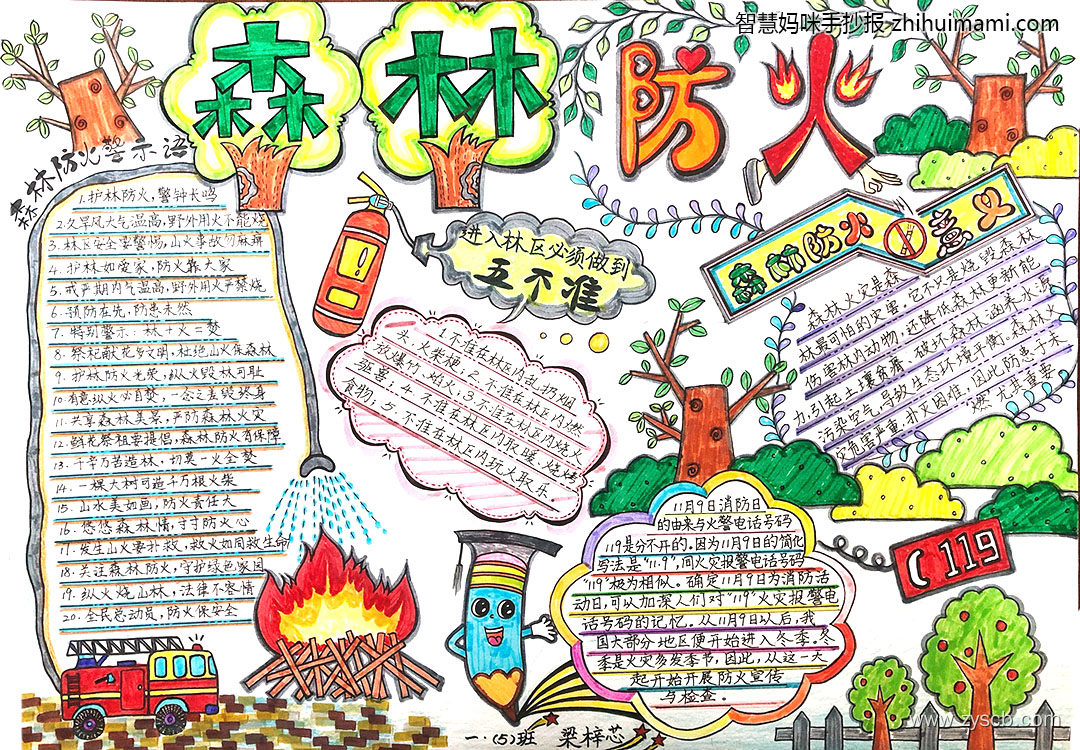 智慧妈咪手抄报-zhihuimami.com
森林防火
森林防火警示语
1.护林防火,警钟长鸣
2.久旱风大气温高,野外用火不能烧
3.林区安全要警惕,山火事故勿麻痹
4.护林如爱家,防火靠大家
5.戒严期内气温高,野外用火严禁烧
6.预防在先,防患未然
7.特别警示:林+火=焚
8.祭祀献花多文明,杜绝山火保森林
9.护林防火光荣,纵火毁林可耻
10.有意纵火必自焚,一念之差毁终身
11.共享森林美景,严防森林火灾
12.鲜花祭祖要提倡,森林防火有保障
13.千辛万苦造林,切莫一火全焚
14.一棵大树可造千万根火柴
15.山水美如画,防火责任大
16.悠悠森林情,寸寸防火心
17.发生山火要扑救,救火如同救生命
18.关注森林防火,守护绿色家园
19.纵火烧山林,法律不容情
20.全民总动员,防火保安全
进入林区必须做到
五不准
1.不准在林区内乱扔烟
头、火柴梗;2.不准在林区内燃
放爆竹、焰火;3.不准在林区内烧火
驱兽;4.不准在林区内取暖、烧烤
食物;5.不准在林区内玩火取乐。
森林防火意义
森林火灾是森
林最可怕的灾害,它不只是烧毁森林
伤害林内动物,还降低森林更新能
力,引起土壤贫瘠,破坏森林涵养水源
污染空气,导致生态环境平衡。森林火
灾危害严重,扑灭困难,因此防患于未
“燃”尤其重要
11月9日消防日
的由来与火警电话号码
119是分不开的。因为11月9日的简化
写法是“11.9”,同火灾报警电话号码
“119”极为相似。确定11月9日为消防活
动日,可以加深人们对“119”火灾报警电
话号码的记忆。从11月9日以后,我
国大部分地区便开始进入冬季。冬
季是火灾多发季节,因此,从这一天
起开始开展防火宣传
与检查。
119
一.(5)班 梁梓芯
www.zyscb.com